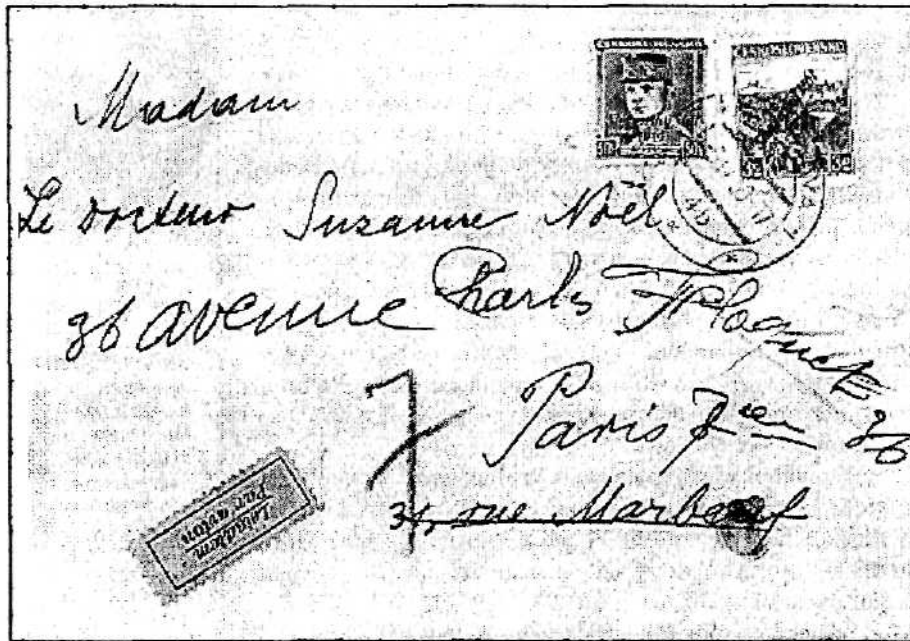 Madam
Le Docteur Suzanne Noël
36 avenue Charles Floquet
Paris 7e 36
7
31, rue Marbeuf
Letadlem
Par avion